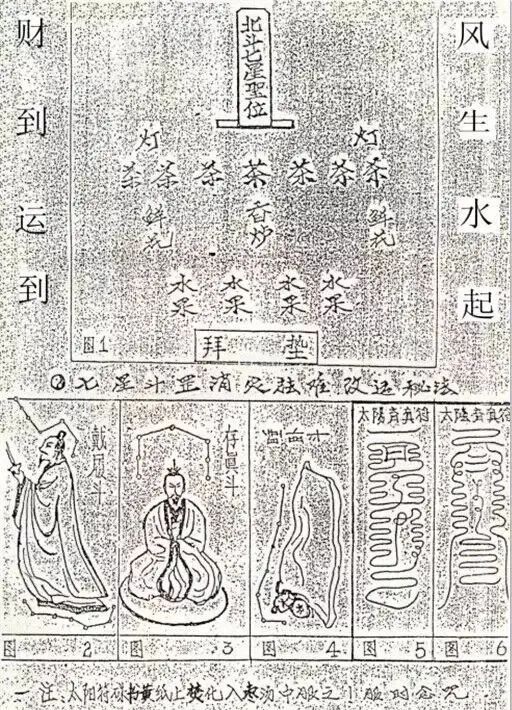 财到运到
风生水起
北斗七星聖位
灯 灯
茶 茶 茶 茶 茶 茶 茶
鲜花 香炉 鲜花
水果 水果 水果 水果
图1
拜 垫
七星斗罡消灾祛难改运秘法
戴履斗
存眞斗
图 2
图 3
图 4
图 5
图 6
注、太阳符 黄纸上焚化入枣汤中服之 服时念咒